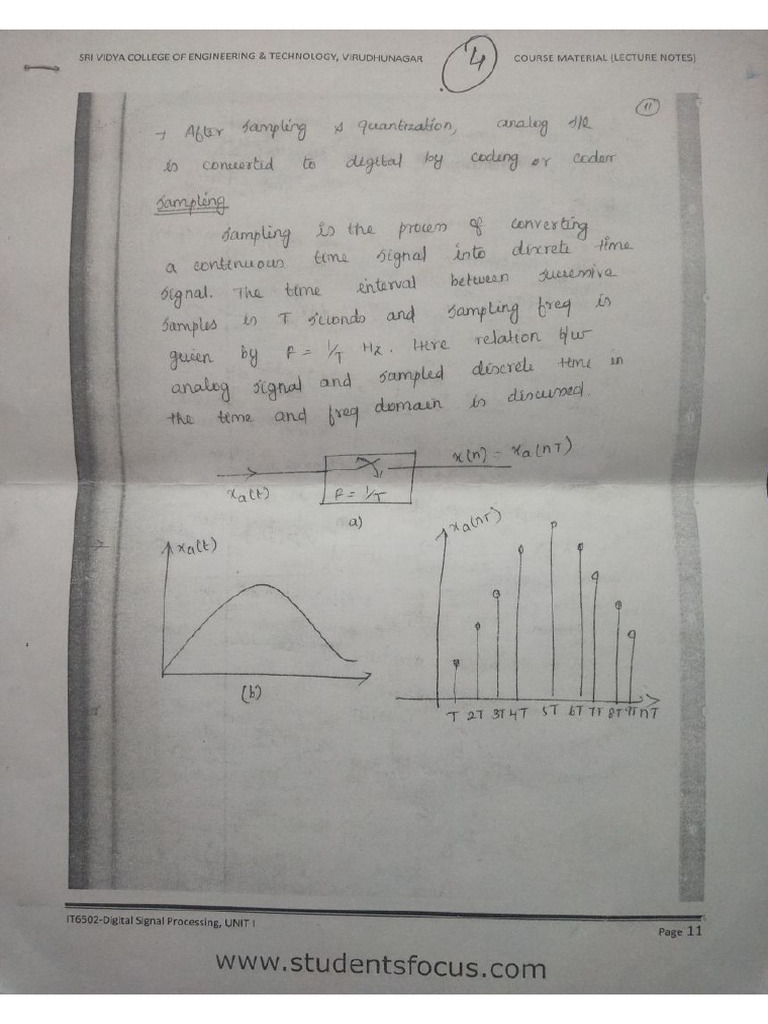 SRI VIDYA COLLEGE OF ENGINEERING & TECHNOLOGY, VIRUDHUNAGAR
4
COURSE MATERIAL (LECTURE NOTES)
11
→ After sampling & quantization, analog
is converted to digital by coding or coder
Sampling
Sampling is the process of converting
a continuous time signal into discrete time
signal. The time interval between successive
samples is T seconds and sampling freq is
given by F = 1/T Hz. Here relation b/w
analog signal and sampled discrete time in
the time and freq domain is discussed.
xa(t)
F = 1/T
x(n) = xa(nT)
a)
xa(t)
(b)
xa(nT)
T 2T 3T 4T 5T 6T 7T 8T 9T nT
IT6502-Digital Signal Processing, UNIT I
Page 11
www.studentsfocus.com